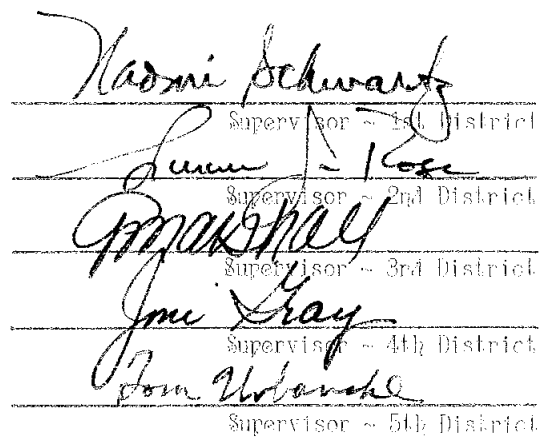 Naomi Schwartz
Supervisor ~ 1st District
Susan J. Rose
Supervisor ~ 2nd District
GMarshall
Supervisor ~ 3rd District
Joni Gray
Supervisor ~ 4th District
Tom Urbanske
Supervisor ~ 5th District